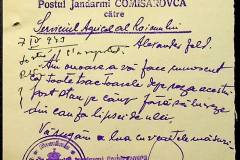 Postul Jandarmi COMISAROVCA
către
Serviciul Agricol al Raionului
7/IV 943 Alexander feld.
Am onoarea vă face cunoscut
că toate tractoarele depe acest
post stau pe câmp fără să lucreze
din cauza lipsei de ulei.
Vă rugăm a lua cuvenitele măsuri